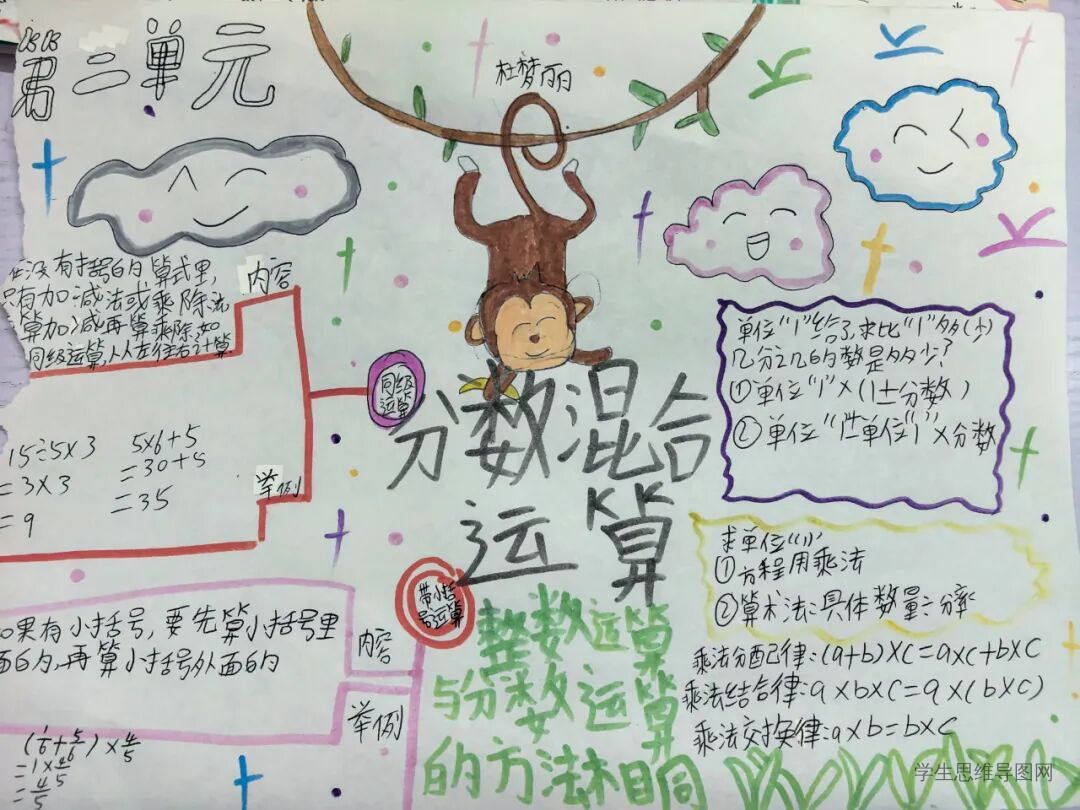 第二单元
杜梦丽
在没有括号的算式里,
只有加减法或乘除法
算加减再算乘除,如
同级运算,从左往右计算
内容
同级
运算
15÷5×3
=3×3
=9
5×6+5
=30+5
=35
举例
分数混合
运算
带小括
号运算
如果有小括号,要先算小括号里
面的,再算小括号外面的
内容
举例
(1/6+5/6)×4/5
=1×4/5
=4/5
整数运算
与分数运算
的方法相同
单位"1"给了,求比"1"多(少)
几分之几的数是多少?
①单位"1"×(1±分数)
②单位"1"±单位"1"×分数
求单位"1"
①方程用乘法
②算术法:具体数量÷分率
乘法分配律:(a+b)×c=a×c+b×c
乘法结合律:a×b×c=a×(b×c)
乘法交换律:a×b=b×c
学生思维导图网